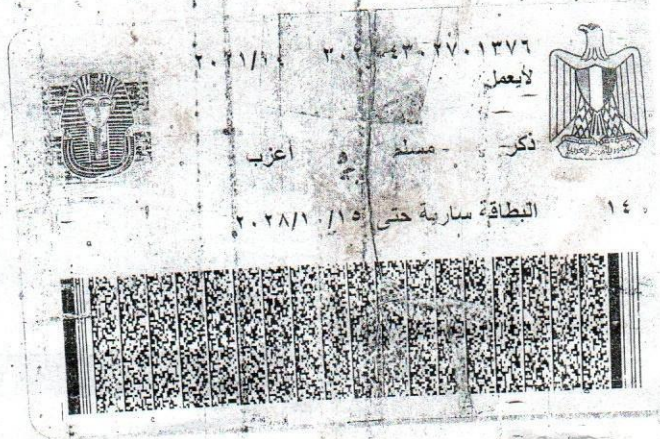 ٢٠٢١/١٠
لايعمل
ذكر مسلم أعزب
البطاقة سارية حتى ٢٠٢٨/١٠/١٥
١٤